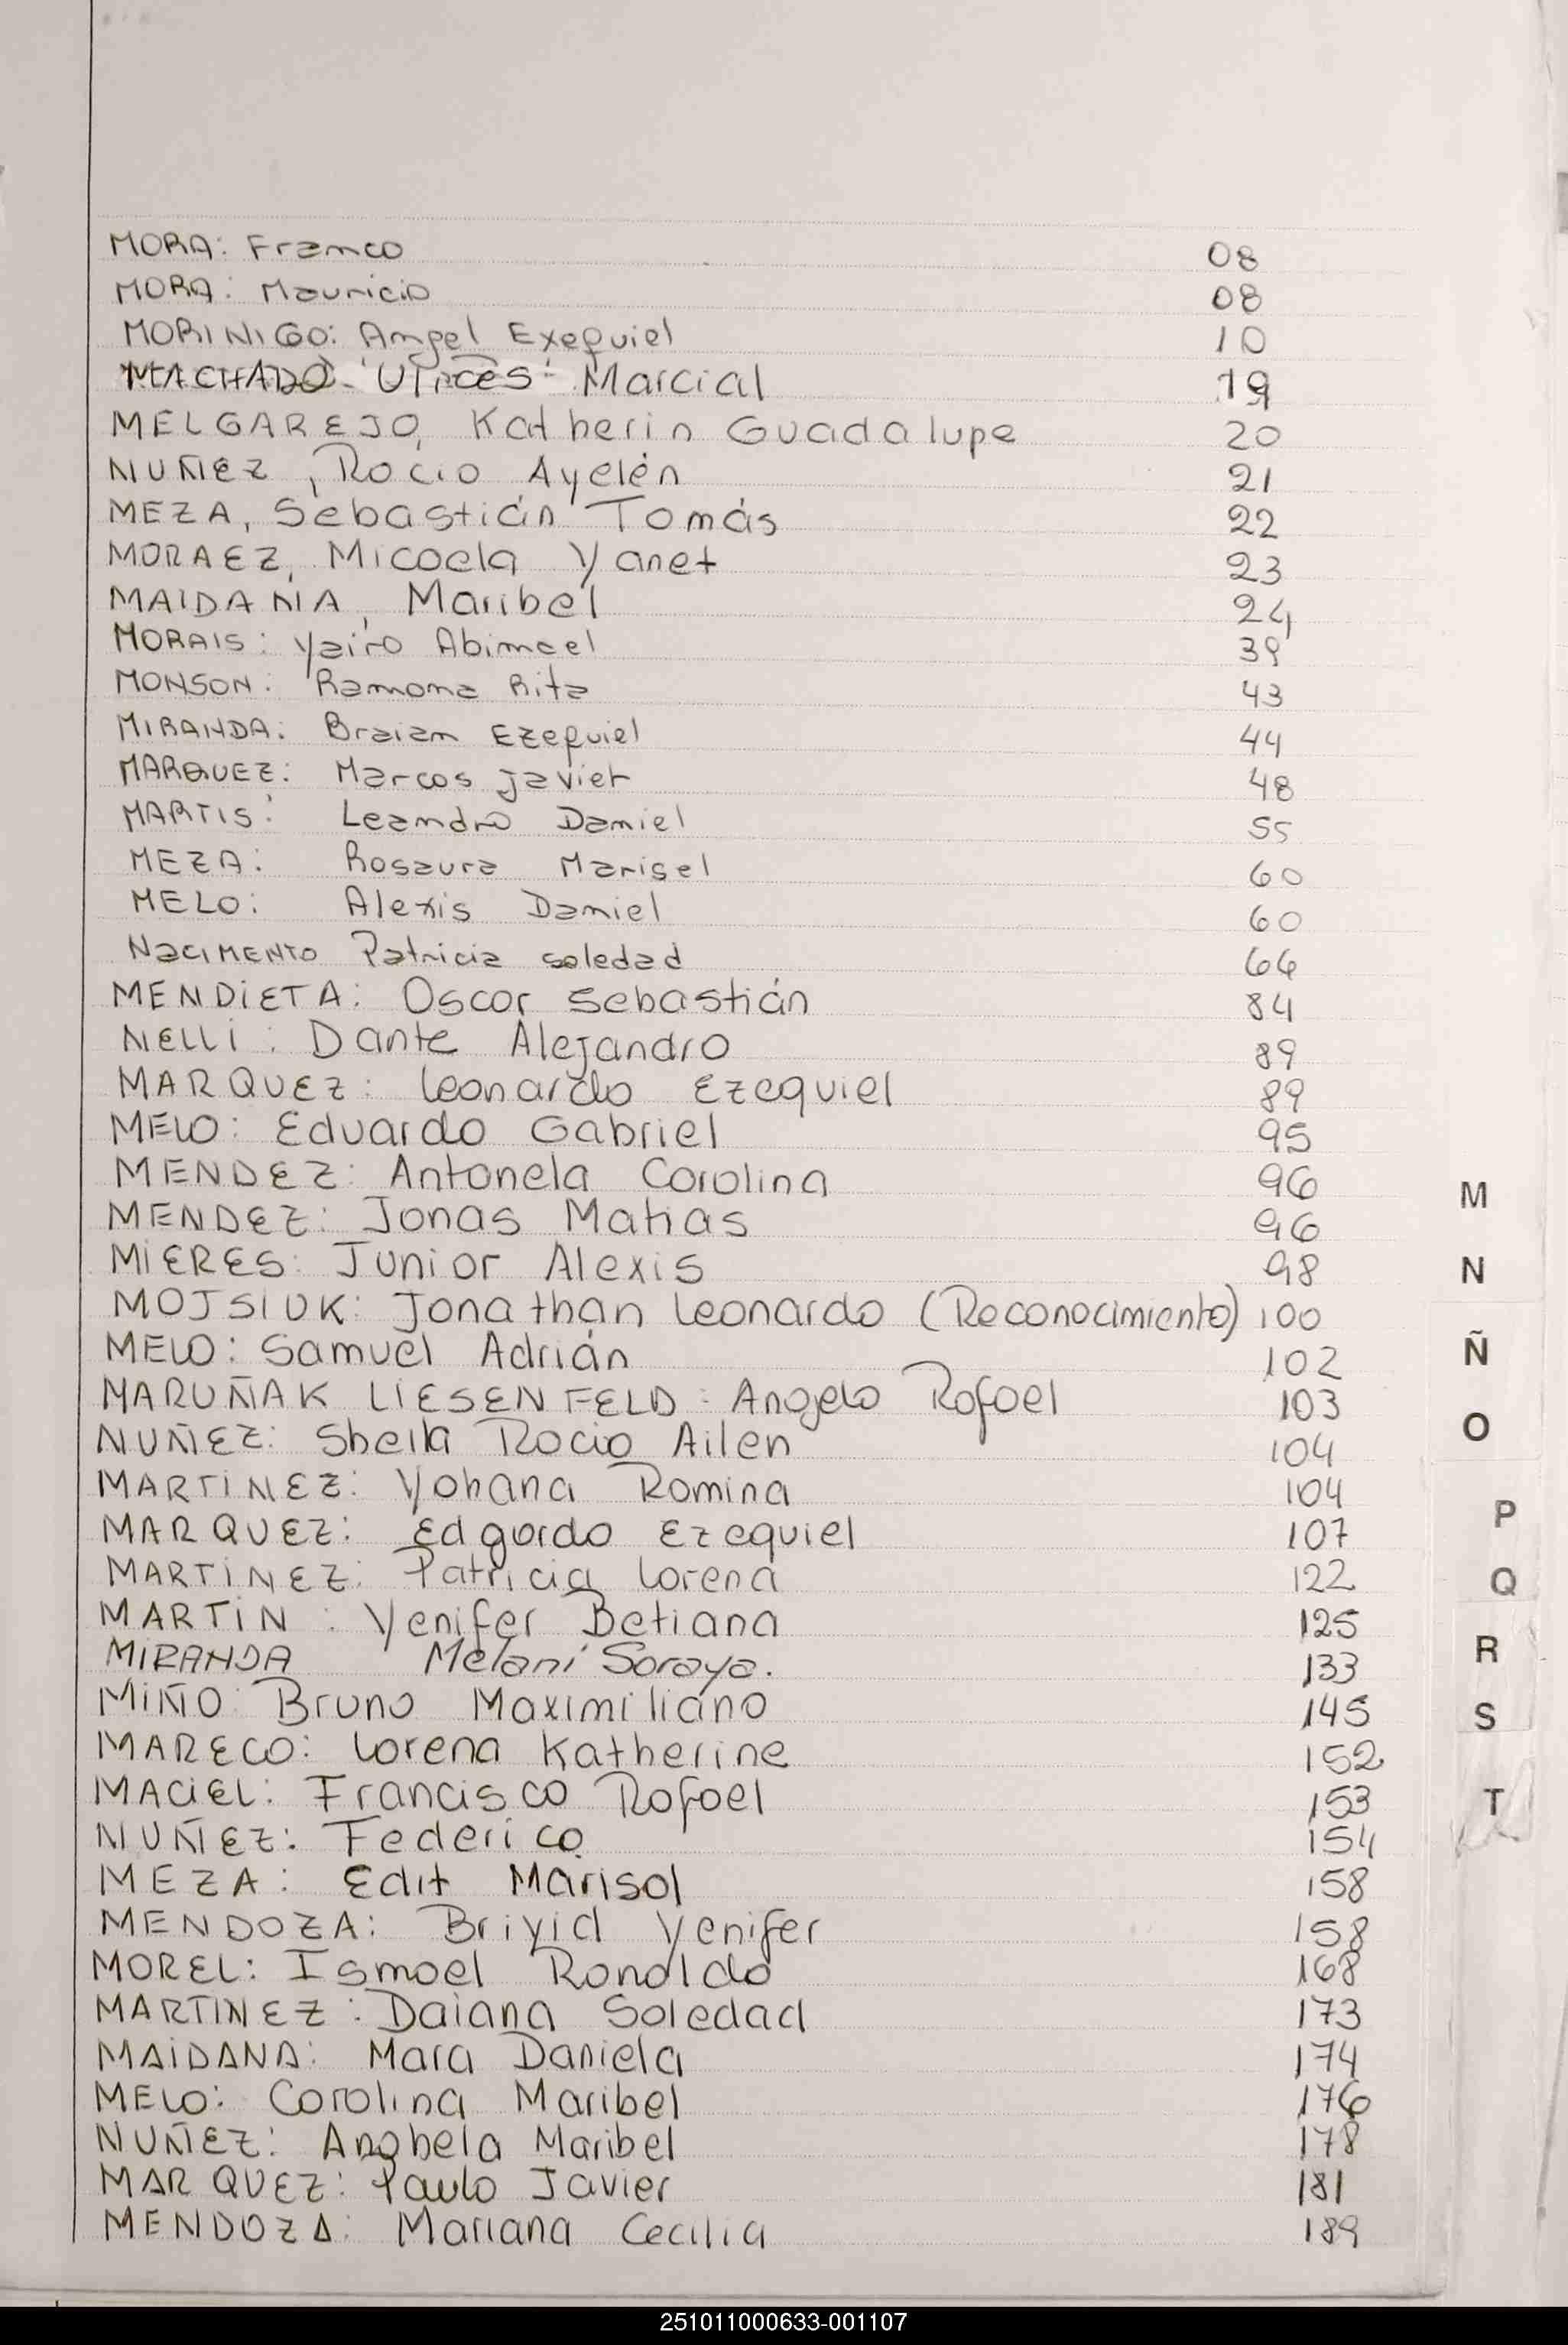 MORA: Franco 08
MORA: Mauricio 08
MORINIGO: Angel Exequiel 10
MACHADO Marcial 19
MELGAREJO, Katherin Guadalupe 20
NUÑEZ, Rocio Ayelén 21
MEZA, Sebastián Tomás 22
MORAEZ, Micaela Yanet 23
MAIDANA, Maribel 24
MORAIS: Yairo Abimael 39
MONSON: Ramona Rita 43
MIRANDA: Braian Ezequiel 44
MARQUEZ: Marcos Javier 48
MARTIS: Leandro Daniel 55
MEZA: Rosaura Marisel 60
MELO: Alexis Daniel 60
NaCIMENTO Patricia soledad 66
MENDIETA: Oscar Sebastián 84
NELLI: Dante Alejandro 89
MARQUEZ: Leonardo Ezequiel 89
MELO: Eduardo Gabriel 95
MENDEZ: Antonela Carolina 96
MENDEZ: Jonas Matias 96
MIERES: Junior Alexis 98
MOJSIUK: Jonathan Leonardo (Reconocimiento) 100
MELO: Samuel Adrián 102
MARUÑAK LIESENFELD: Angelo Rafael 103
NUÑEZ: Sheila Rocio Ailen 104
MARTINEZ: Yohana Romina 104
MARQUEZ: Edgardo Ezequiel 107
MARTINEZ: Patricia Lorena 122
MARTIN: Yenifer Betiana 125
MIRANDA Melani Soraya. 133
MIÑO: Bruno Maximiliano 145
MARECO: Lorena Katherine 152
MACIEL: Francisco Rafael 153
NUÑEZ: Federico 154
MEZA: Edit Marisol 158
MENDOZA: Briyid Yenifer 158
MOREL: Ismael Ronaldo 168
MARTINEZ: Daiana Soledad 173
MAIDANA: Mara Daniela 174
MELO: Carolina Maribel 176
NUÑEZ: Anabela Maribel 178
MARQUEZ: Paulo Javier 181
MENDOZA: Mariana Cecilia 189
M
N
Ñ
O
P
Q
R
S
T
251011000633-001107